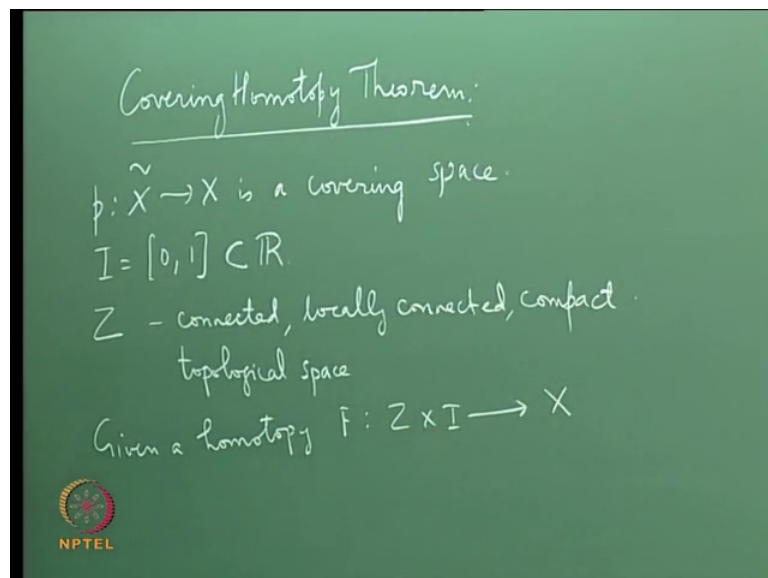 Covering Homotopy Theorem:
p: X̃ → X is a covering space.
I = [0, 1] ⊂ ℝ.
Z - connected, locally connected, compact
topological space
Given a homotopy F: Z x I → X
NPTEL